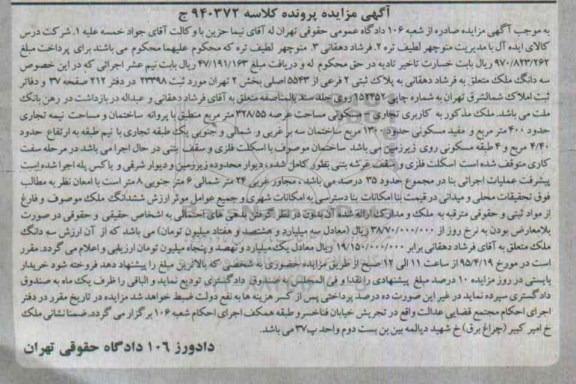 آگهی مزایده پرونده کلاسه ۹۴۰۳۷۲ ج
به موجب آگهی مزایده صادره از شعبه ۱۰۶ دادگاه عمومی حقوقی تهران له آقای نیما حزین با وکالت آقای جواد خمسه علیه ۱. شرکت درس
کالای ایده آل با مدیریت منوچهر لطیف تره ۲. فرشاد دهقانی ۳. منوچهر لطیف تره که محکوم علیهما محکوم می باشند برای پرداخت مبلغ
۹۷۰/۸۲۳/۲۶۲ ریال بابت خسارت تاخیر تادیه در حق محکوم له و دریافت مبلغ ۴۷/۱۹۱/۱۶۳ ریال بابت نیم عشر اجرائی که در این خصوص
سه دانگ ملک متعلق به فرشاد دهقانی به پلاک ثبتی ۲ فرعی از ۵۵۴۳ اصلی بخش ۲ تهران مورد ثبت ۲۳۳۹۸ در دفتر ۲۱۲ صفحه ۳۷ و دفاتر
ثبت املاک شمالشرق تهران به شماره چاپی ۱۵۲۴۵۲ روی جلد سند بالمناصفه متعلق به آقای فرشاد دهقانی و عبداله در بازداشت در رهن بانک
ملت می باشد. ملک مذکور به کاربری تجاری - مسکونی مساحت عرصه ۳۲۸/۵۵ متر مربع منطبق با پروانه ساختمان و مساحت نیمه تجاری
حدود ۴۰۰ متر مربع و مفید مسکونی حدود ۱۳۰۰ مترمربع ساختمان سه بر غربی و شمالی و جنوبی یک طبقه تجاری با نیم طبقه به ارتفاع حدود
۴/۴۰ مربع و ۴ طبقه مسکونی روی زیرزمین می باشد. ساختمان موصوف با اسکلت فلزی و سقف بتنی در حال اجرا می باشد در مرحله سفت
کاری متوقف شده است اسکلت فلزی و سقف عرشه بتنی بطور کامل شده، دیوار محدوده زیرزمین و دیوار شرقی و باکس پله اجرا شده است
پیشرفت عملیات اجرائی بنا در مجموع حدود ۳۵ درصد می باشد، مجاور غربی ۲۴ متر شمالی ۶ متر جنوبی ۸ متر است با امعان نظر به مطالب
فوق تحقیقات محلی و میدانی در قیمت بنا امکانات بنا دسترسی به امکانات شهری و جمیع عوامل موثر ارزش ششدانگ ملک موصوف و فارغ
از مواد ثبتی و حقوقی مترقبه به ملک و مدارک ارائه شده آن بدون در نظر گرفتن بدهی های احتمالی به اشخاص حقیقی و حقوقی در صورت
بلامعارض بودن به نرخ روز از ۳۸۷۰/۰۰۰/۰۰۰ ریال (معادل سه میلیارد و هشتصد و هفتاد میلیون تومان) می باشد که از آن ارزش سه دانگ
ملک متعلق به آقای فرشاد دهقانی برابر ۱۹/۱۵۰/۰۰۰/۰۰۰ ریال معادل یک میلیارد و نهصد و پنجاه میلیون تومان ارزیابی و اعلام می گردد. مقرر
است در مورخ ۹۵/۴/۱۹ از ساعت ۱۱ الی ۱۲ صبح از طریق مزایده حضوری به شخصی که بالاترین مبلغ را پیشنهاد دهد فروخته شود خریدار
بایستی در روز مزایده ۱۰ درصد مبلغ پیشنهادی را نقدا و فی المجلس به صندوق دادگستری تودیع نماید و الباقی را ظرف یک ماه به صندوق
دادگستری سپرده نماید در غیر این صورت ده درصد پرداختی پس از کسر هزینه ها به نفع دولت ضبط خواهد شد مزایده در تاریخ مقرر در دفتر
اجرای احکام مجتمع قضایی عدالت واقع در تجریش خیابان فناخسرو طبقه همکف اجرای احکام شعبه ۱۰۶ برگزار می گردد. ضمنا نشانی ملک
خ امیر کبیر (چراغ برق) خ شهید دیالمه بین بن بست دوم واحد پ۳۷ می باشد.
دادورز ۱۰۶ دادگاه حقوقی تهران